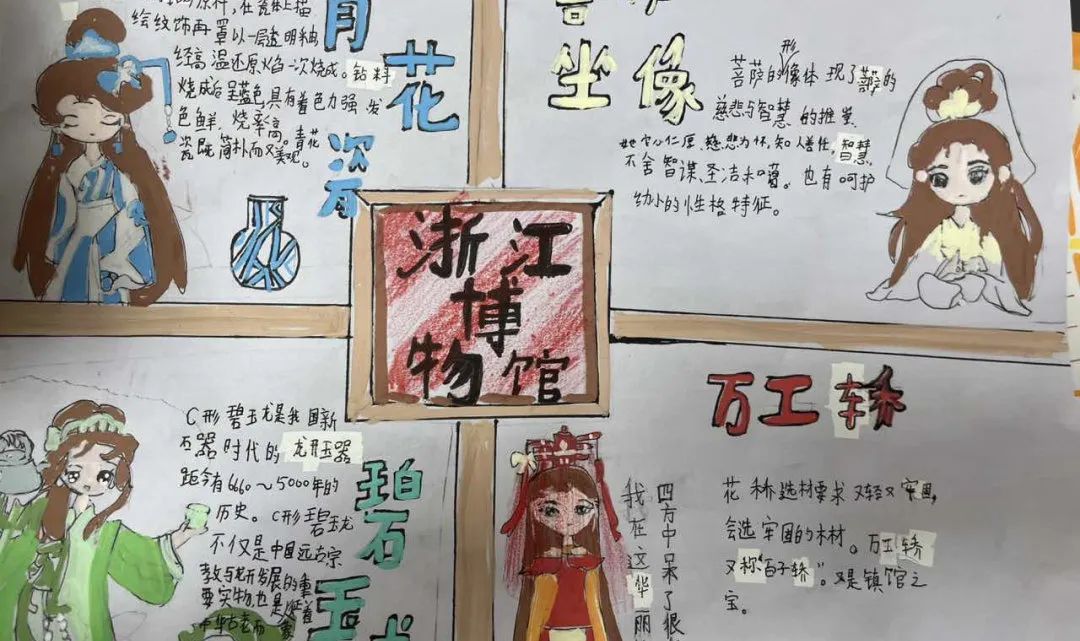 绘纹饰再罩以一层透明釉
经高温还原焰一次烧成。钴料
烧成后呈蓝色具有着色力强、发
色鲜,烧率高。青花
瓷既简扑而又美观。
青花瓷
坐像
菩萨的形像体现了菩萨的
慈悲与智慧的推崇
她宅心仁厚,慈悲为怀,知人善任,智慧
不舍智谋,圣洁
也有呵护
幼小的性格特征。
浙江
博
物馆
C形碧玉龙是我国新
石器时代的龙形玉器
距今有6660~5000年的
历史。C形碧玉龙
不仅是中国远古宗
教与龙形发展的重
要实物,也是
碧石玉
万工轿
花轿选材要求又轻又牢固,
会选牢固的木材。万工轿
又称“百子轿”。又是镇馆之
宝。
四方中呆了很
我在这华丽